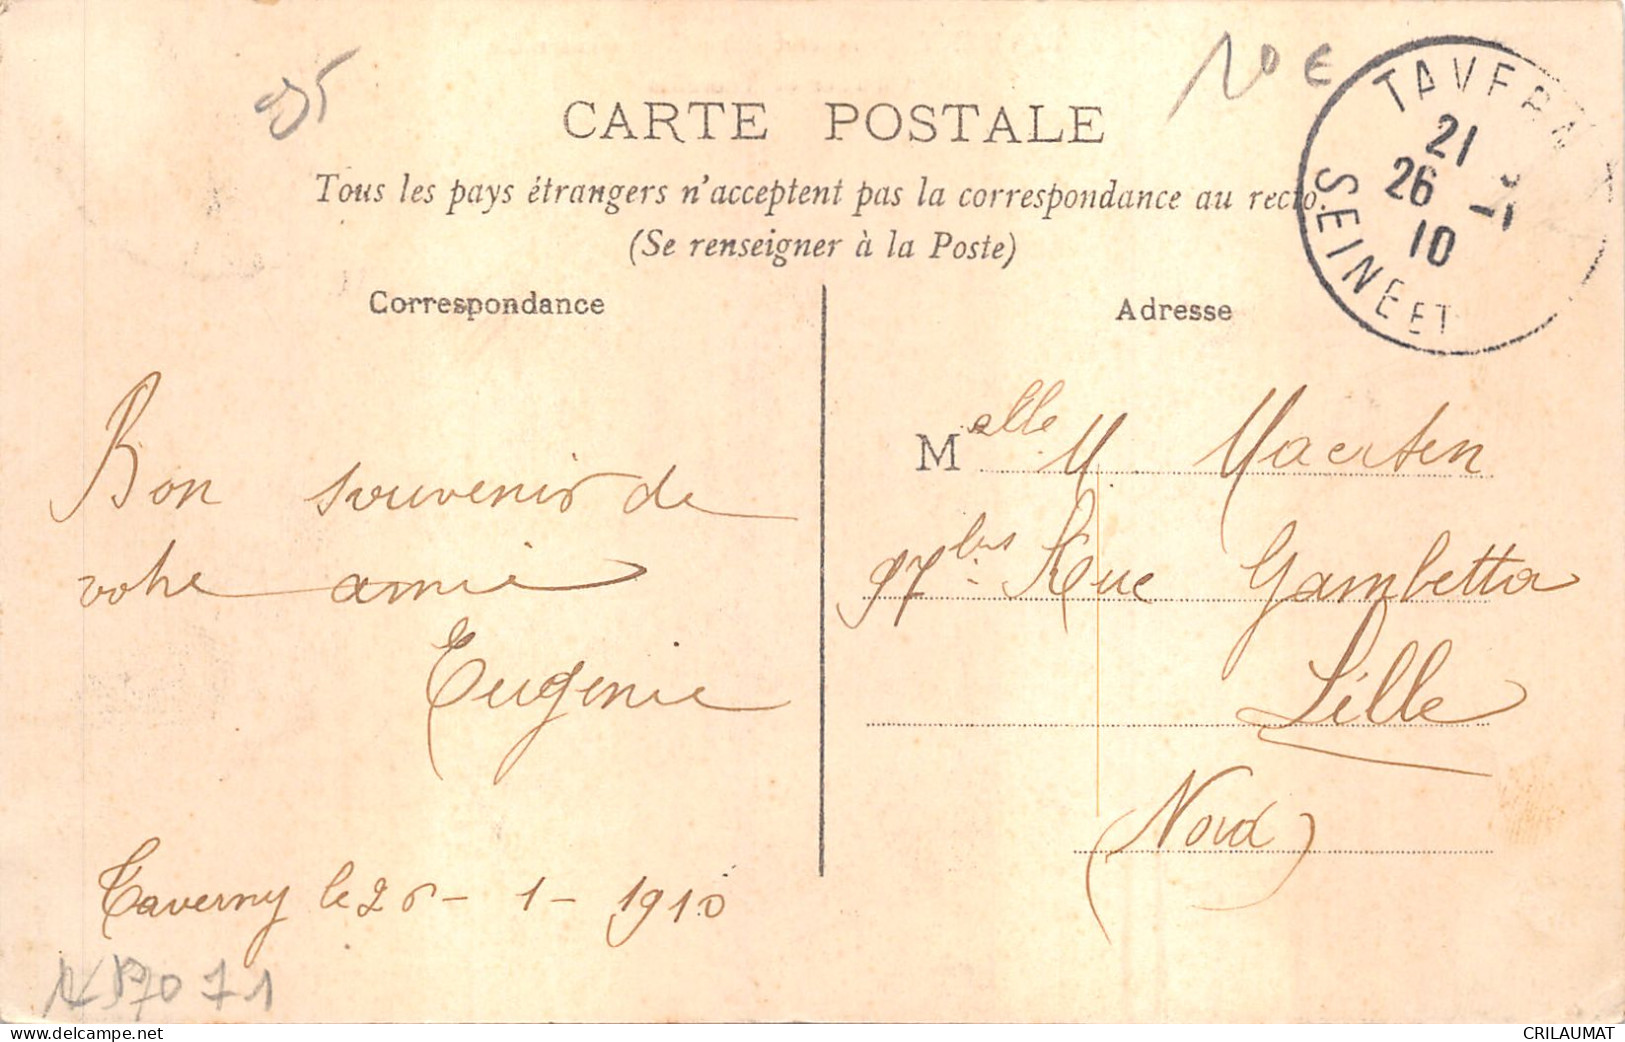 95
10 €
CARTE POSTALE
Tous les pays étrangers n'acceptent pas la correspondance au recto.
(Se renseigner à la Poste)
TAVERN
21
26 -1-
10
SEINE ET
Correspondance
Bon souvenir de
votre amie
Eugénie
Taverny le 26 - 1 - 1910
Adresse
Melle M. Maerten
97 bis Rue Gambetta
Lille
(Nord)
71
www.delcampe.net
CRILAUMAT